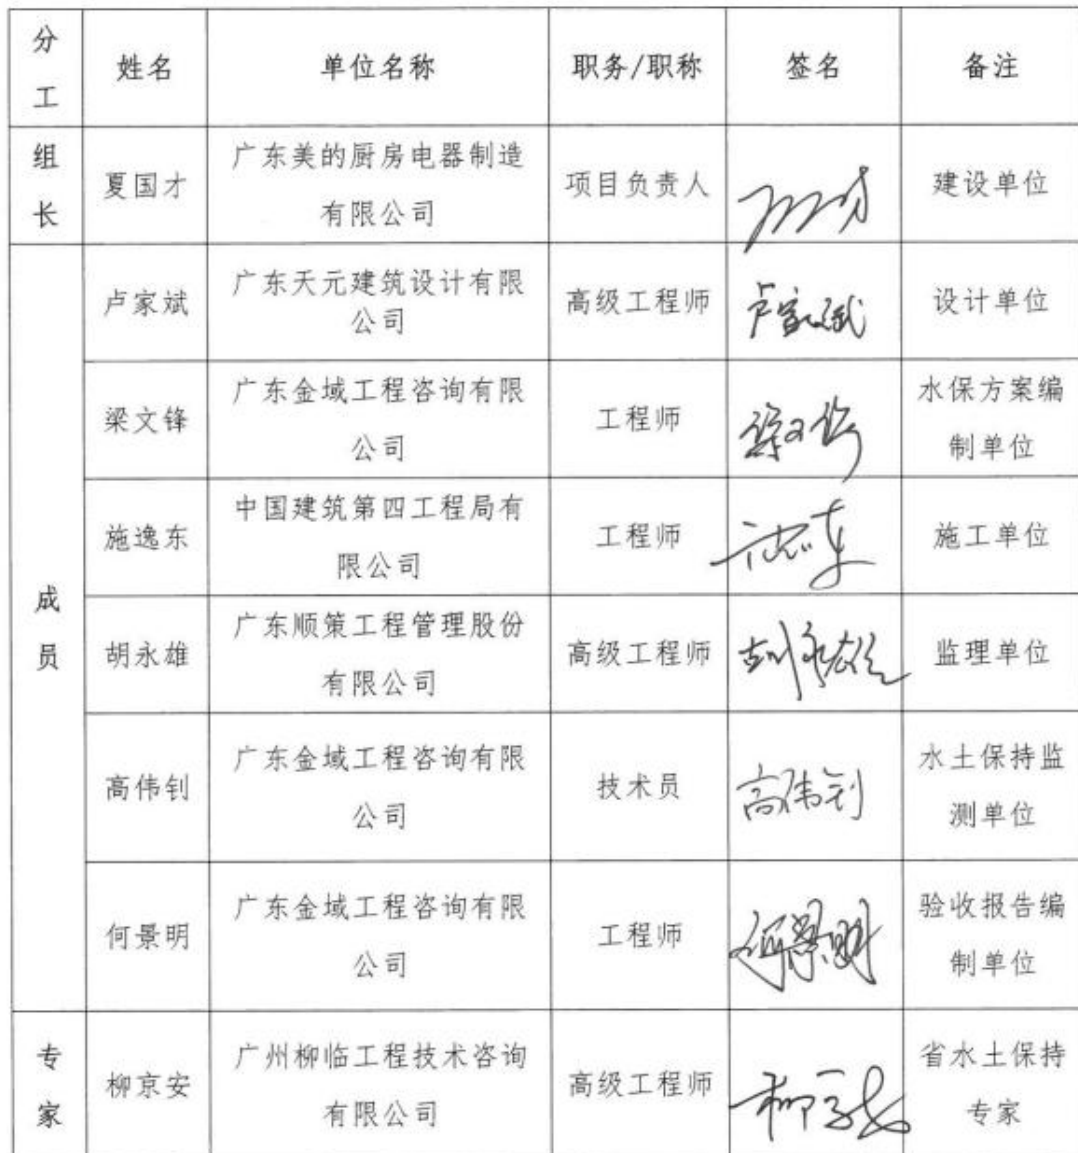 分工 姓名 单位名称 职务/职称 签名 备注
组长 夏国才 广东美的厨房电器制造有限公司 项目负责人 建设单位
成员
卢家斌 广东天元建筑设计有限公司 高级工程师 卢家斌 设计单位
梁文锋 广东金域工程咨询有限公司 工程师 梁文锋 水保方案编制单位
施逸东 中国建筑第四工程局有限公司 工程师 施工单位
胡永雄 广东顺策工程管理股份有限公司 高级工程师 胡永雄 监理单位
高伟钊 广东金域工程咨询有限公司 技术员 高伟钊 水土保持监测单位
何景明 广东金域工程咨询有限公司 工程师 何景明 验收报告编制单位
专家 柳京安 广州柳临工程技术咨询有限公司 高级工程师 柳京安 省水土保持专家